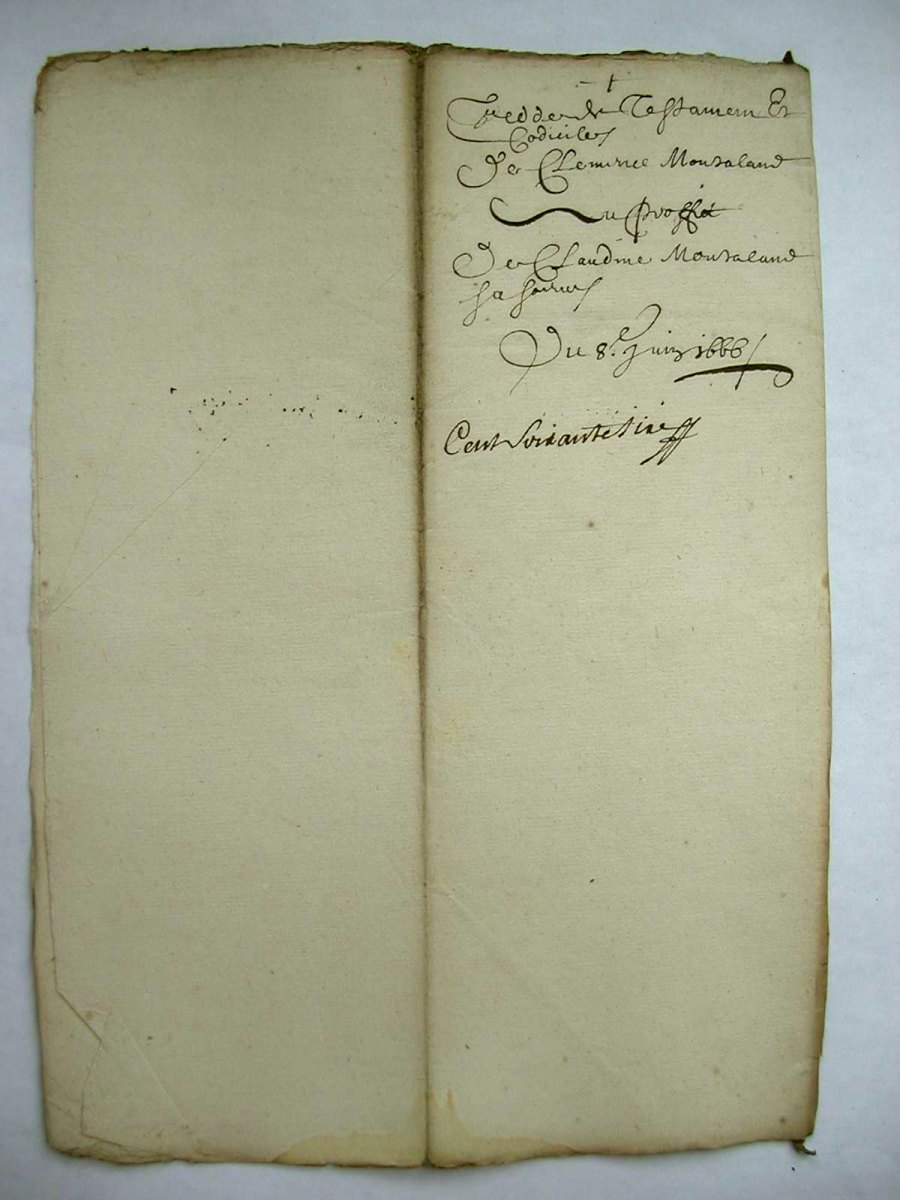 +
de Testament Et
Codiciles
De Clemence Montaland
Au Proffit
De Claudine Montaland
Sa Soeur
Du 8.e Juin 1666
Cent Soixante Sixe